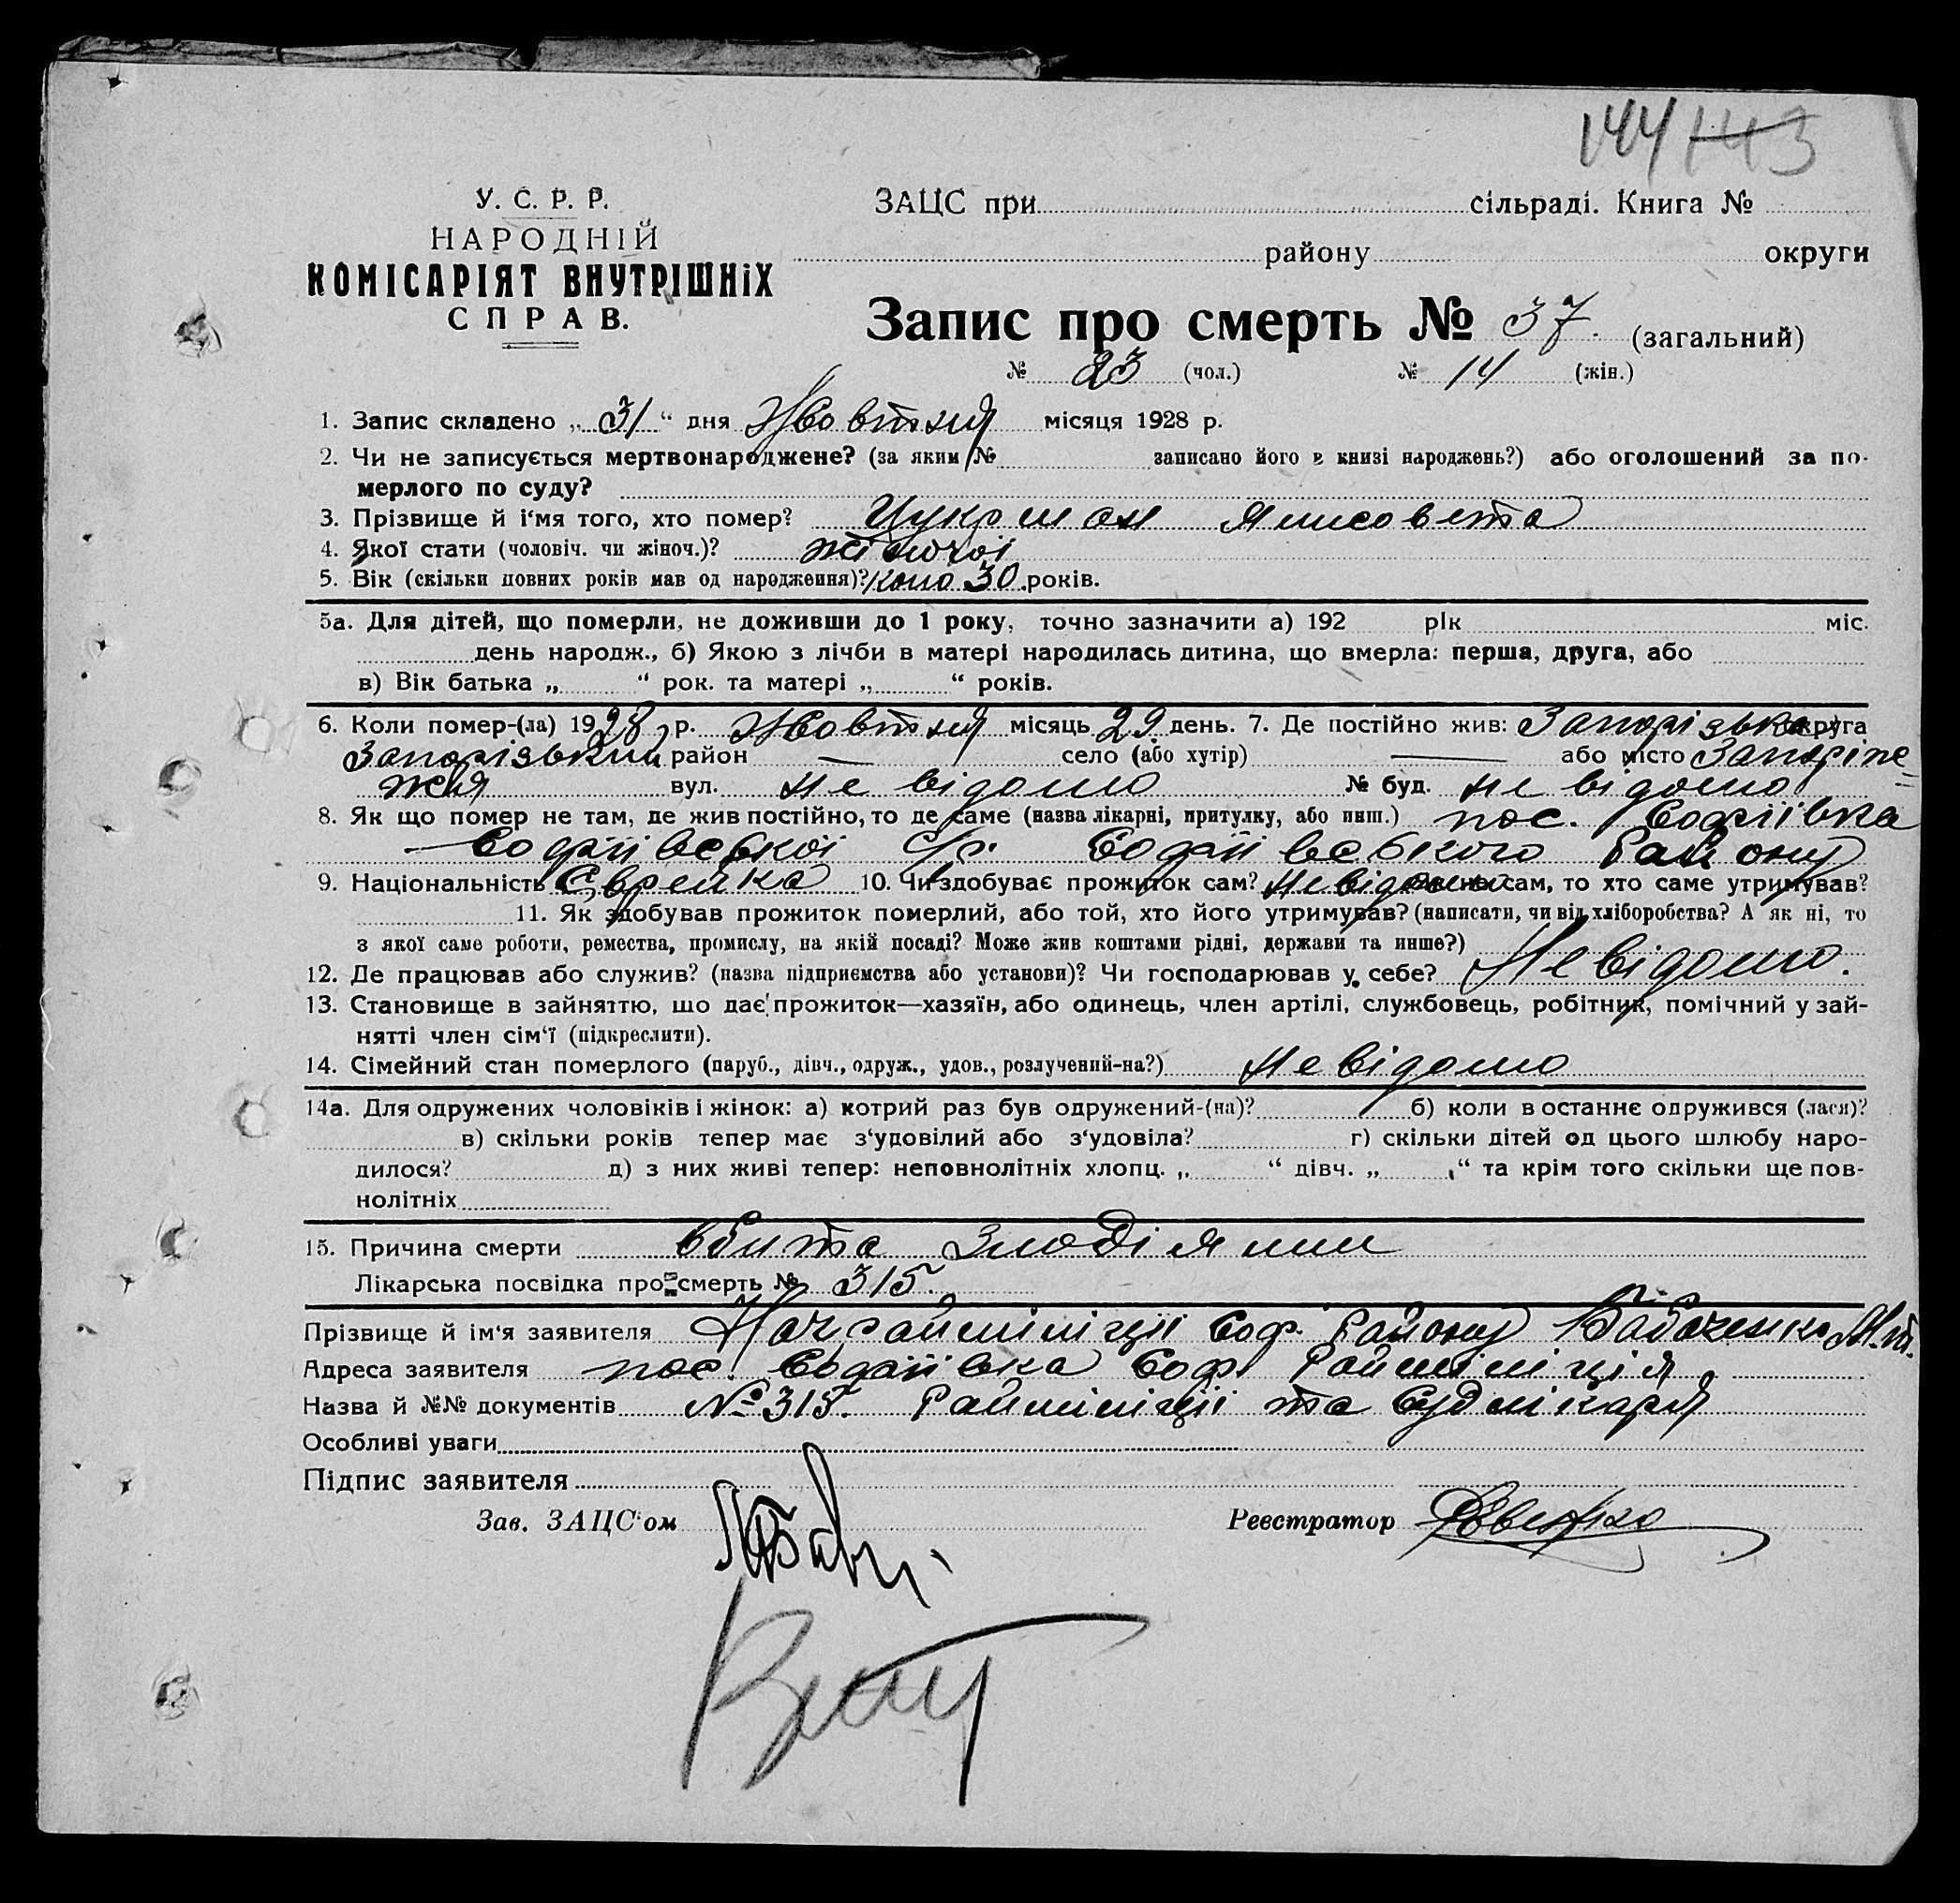 144 143
У. С. Р. Р.
НАРОДНІЙ
КОМІСАРІЯТ ВНУТРІШНіХ
СПРАВ.
ЗАЦС при сільраді. Книга №
району округи
Запис про смерть № 37. (загальний)
№ 23 (чол.) № 14 (жін.)
1. Запис складено „ 31 “ дня Жовтня місяця 1928 р.
2. Чи не записується мертвонароджене? (за яким № записано його в книзі народжень?) або оголошений за по-
мерлого по суду?
3. Прізвище й і‘мя того, хто помер? Цукрман Ялисовета
4. Якої стати (чоловіч. чи жіноч.)? жіночої
5. Вік (скільки повних років мав од народження)? коло 30 років.
5а. Для дітей, що померли, не доживши до 1 року, точно зазначити а) 192 рік міс.
день народж., б) Якою з лічби в матері народилась дитина, що вмерла: перша, друга, або
в) Вік батька „ “ рок. та матері „ “ років.
6. Коли помер-(ла) 1928 р. Жовтня місяць 29 день. 7. Де постійно жив: Запорізька округа
Запорізький район — село (або хутір) — або місто Запоріж-
жя вул. не відомо № буд. не відомо
8. Як що помер не там, де жив постійно, то де саме (назва лікарні, притулку, або инш.) пос. Софіівка
Софіівської С/р. Софіівського Району
9. Національність Єврейка 10. Чи здобуває прожиток сам? Невідомо не сам, то хто саме утримував?
11. Як здобував прожиток померлий, або той, хто його утримував? (написати, чи від хліборобства? А як ні, то
з якої саме роботи, ремества, промислу, на якій посаді? Може жив коштами рідні, держави та инше?)
12. Де працював або служив? (назва підприємства або установи)? Чи господарював у себе? Невідомо.
13. Становище в зайняттю, що дає прожиток—хазяїн, або одинець, член артілі, службовець, робітник, помічний у зай-
нятті член сім‘ї (підкреслити).
14. Сімейний стан померлого (паруб., дівч., одруж., удов., розлучений-на?) Невідомо
14а. Для одружених чоловіків і жінок: а) котрий раз був одружений-(на)? б) коли в останнє одружився (лася)?
в) скільки років тепер має з‘удовілий або з‘удовіла? г) скільки дітей од цього шлюбу наро-
дилося? д) з них живі тепер: неповнолітніх хлопц. „ “ дівч. „ “ та крім того скільки ще пов-
нолітніх
15. Причина смерти вбита злодіями
Лікарська посвідка про смерть № 315.
Прізвище й ім‘я заявителя Начрайміліції Соф. Району Бабаченко
Адреса заявителя пос. Софіівка Соф. Райміліція
Назва й №№ документів №315. Райміліції та Судлікаря
Особливі уваги
Підпис заявителя
Зав. ЗАЦС‘ом Реєстратор